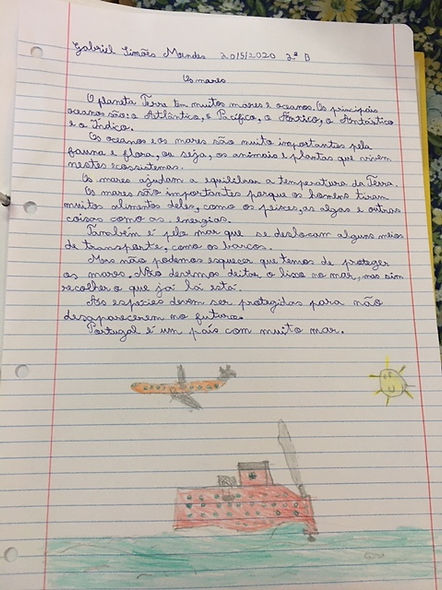 Gabriel Simões Mendes 20/5/2020 2º B
Os mares
O planeta Terra tem muitos mares e oceanos. Os principais
oceanos são: o Atlântico, o Pacífico, o Ártico, o Antártico
e o Índico.
Os oceanos e os mares são muito importantes pela
fauna e flora, ou seja, os animais e plantas que vivem
nestes ecossistemas.
Os mares ajudam a equilibrar a temperatura da Terra.
Os mares são importantes porque os homens tiram
muitos alimentos deles, como os peixes, as algas e outras
coisas como as energias.
Também é pelo mar que se deslocam alguns meios
de transporte, como os barcos.
Mas não podemos esquecer que temos de proteger
os mares. Não devemos deitar o lixo no mar, mas sim
recolher o que já lá está.
As espécies devem ser protegidas para não
desaparecerem no futuro.
Portugal é um país com muito mar.